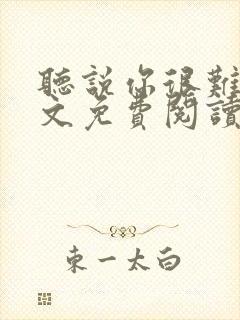 聽說你很難
文免費閱讀
東一太白